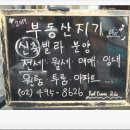 부동산지기
신축빌라 분양
전세 월세 매매 임대
원룸 투룸 아파트...
☎ (02) 495-8626